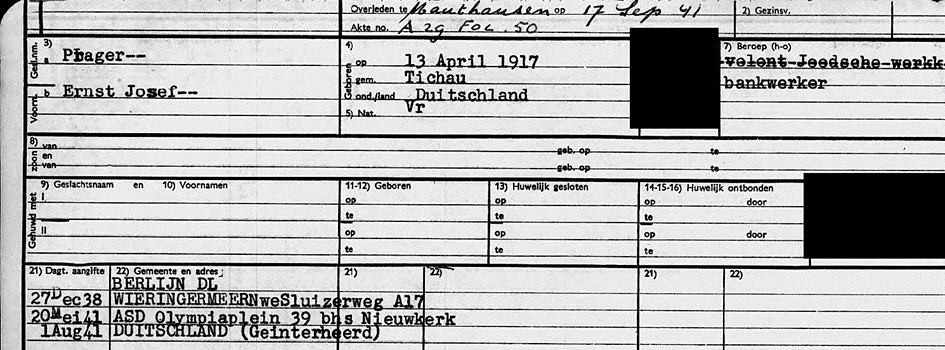 Overleden te Mauthausen op 17 Sep 41 2) Gezinsv.
Akte no. A 29 Fol. 50
3) Gesl.nm. a Prager-- 4) Geboren op 13 April 1917 7) Beroep (h-o)
volont Joodsche werkk
gem. Tichau bankwerker
Voorn. b Ernst Josef-- ond./land Duitschland
5) Nat. Vr
8) zoon van geb. op te
en
van geb. op te
9) Geslachtsnaam en 10) Voornamen 11-12) Geboren 13) Huwelijk gesloten 14-15-16) Huwelijk ontbonden
Gehuwd met I op op op door
te te te
II op op op door
te te te
21) Dagt. aangifte 22) Gemeente en adres; 21) 22) 21) 22)
BERLIJN DL
27Dec38 WIERINGERMEERNweSluizerweg A17
20Mei41 ASD Olympiaplein 39 bhs Nieuwkerk
1Aug41 DUITSCHLAND (Geinterneerd)